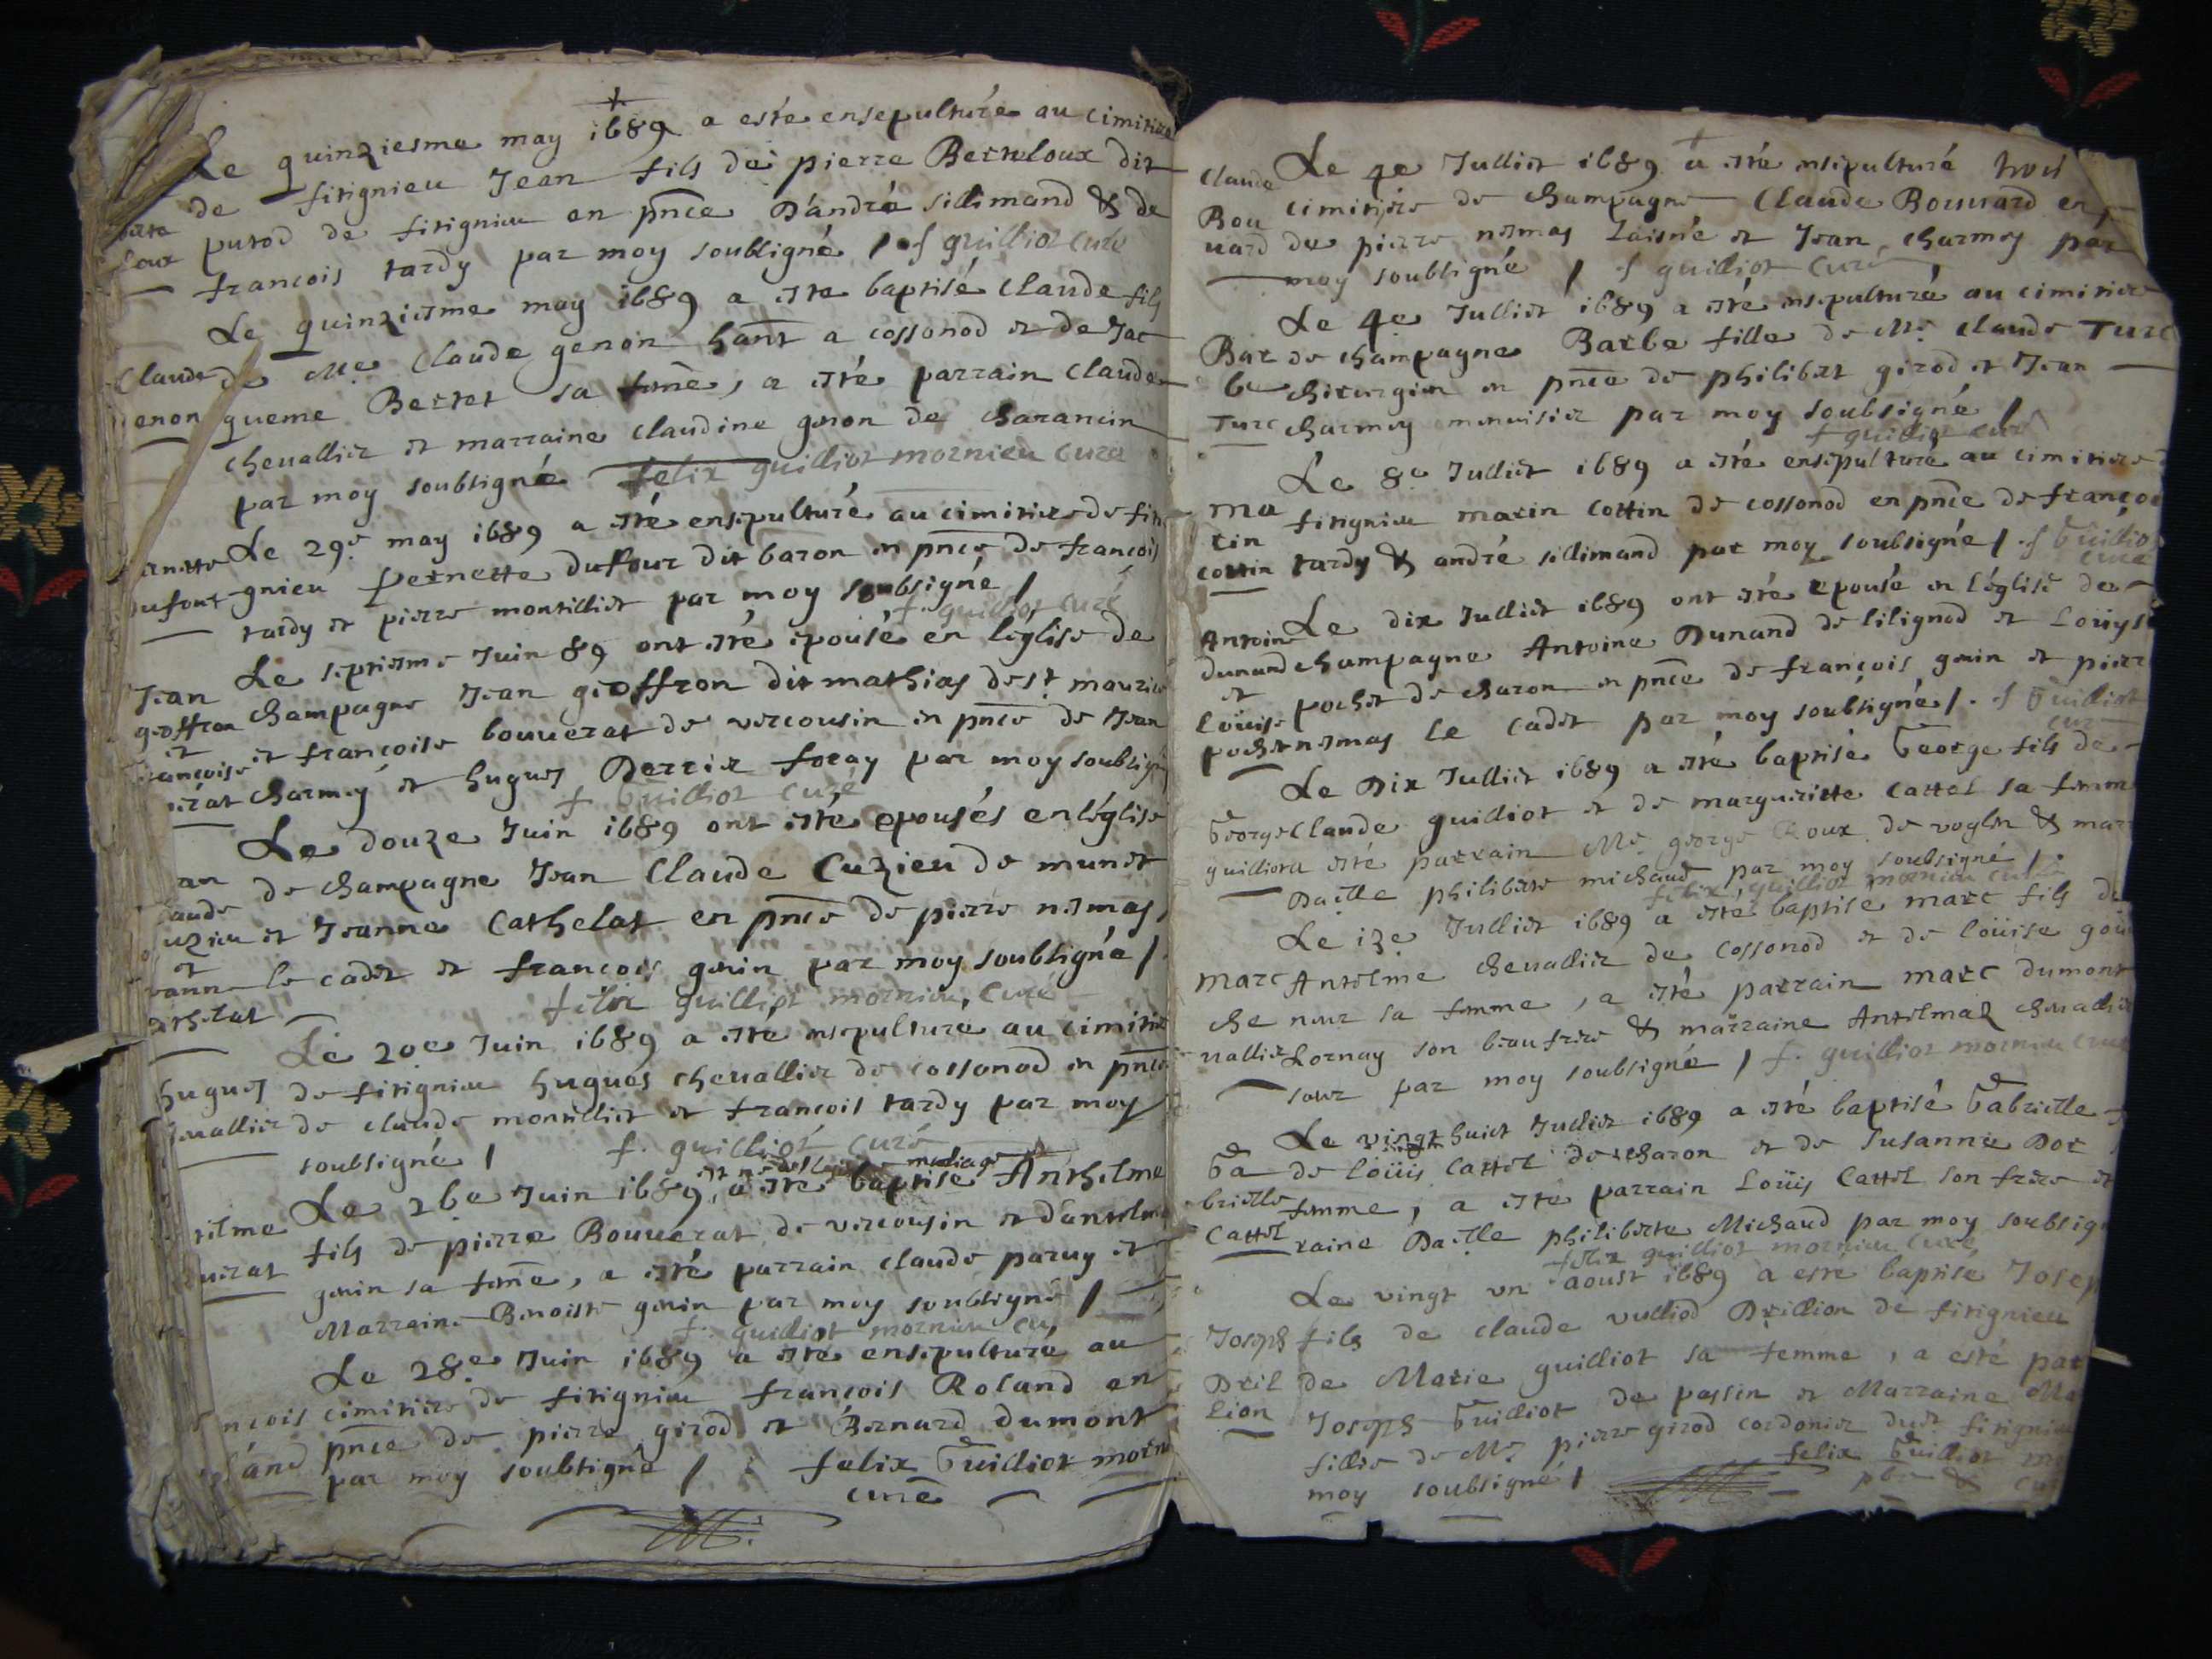 Le quinziesme may 1689 a este ensepulturé au cimitiere
de fitignieu Jean fils de pierre Berteloux dit
loux purod de fitignieu en pnce D'andré sillimand & de
francois tardy par moy soubsigné / f guilliot curé
Le quinziesme may 1689 a este baptisé Claude fils
Claude de Me Claude genon hant a cossonod et de Jac
enon queme Bertet sa feme, a esté parrain Claude
chevallier et marraine Claudine genon de charancin
par moy soubsigné felix guilliot mornieu curé
Le 29e may 1689 a esté ensepulturé au cimitiere de fiti
dufour gnieu pernette dufour dit baron en pnce de francois
tardy et pierre montilliet par moy soubsigné /
f. guilliot curé
Le septiesme Juin 89 ont esté epousé en l'église de
Jean
geoffron champagne Jean geoffron dit mathias de st maurice
et
francoise et francoise bouverat de vercousin en pnce de Jean
verat charmey et hugues Derrix foray par moy soubsigné
f Guilliot curé
Le douze Juin 1689 ont esté epousés en l'église
an de champagne Jean Claude Cuzieu de munet
claude
uzieu et Jeanne Cathelat en pnce de pierre nesmes
et
eanne le cadet et francois genin par moy soubsigné /
athelat felix guilliot mornieu, Curé
Le 20e Juin 1689 a esté ensepulturé au cimitiere
hugues de fitignieu hugues chevallier de cossonod en pnce
evallier de claude montilliet et francois tardy par moy
soubsigné / f. guilliot curé
Le 26e Juin 1689, a esté baptisé Anthelme
telme fils de pierre Bouverat de vercousin et d'antelme
verat genin sa feme, a esté parrain claude parny et
Marraine Benoiste genin par moy soubsigné /
f. guilliot mornieu cu
Le 28e Juin 1689 a esté ensepulturé au
ncois cimitiere de fitignieu francois Roland en
land pnce de pierre girod et Bernard dumont
par moy soubsigné / felix Guilliot morn
curé
Le 4e Julliet 1689 a esté ensepulturé
Claude
Bou cimitiere de champagne Claude Bouvard en
vard de pierre nesmes Laisné et Jean charmey par
moy soubsigné / f guilliot curé
Le 4e Julliet 1689 a esté ensepulturé au cimitiere
Bar de champagne Barbe fille de Me claude Turc
be chirurgien en pnce de philibert girod et Jean
Turc charmey menuisier par moy soubsigné /
f guilliot curé
Le 8e Julliet 1689 a esté ensepulturé au cimitiere
ma fitignieu matin cottin de cossonod en pnce de françois
tin
cottin tardy & andré sillimand par moy soubsigné / f Guillio
curé
Le dix Julliet 1689 ont esté epousé en l'église de
Antoine
dunand champagne Antoine Dunand de lilignod et Louyse
et
Louise pochet de charon en pnce de françois genin et pierre
pochet nesmes le cadet par moy soubsigné /. f Guilliot
cur
Le Dix Julliet 1689 a esté baptisé George fils de
George Claude guilliot et de margueritte Cattel sa femme
guilliot a esté parrain Me george Roux de voglen & mar
Daille philiberte michaud par moy soubsigné /.
felix guilliot mornieu curé
Le 13e Julliet 1689 a esté baptisé marc fils d
marc Antelme chevallier de Cossonod et de loüise gou
che neur sa femme, a esté parrain marc dumont
vallier Lornay son beaufrere & marraine Antelmaz chevallier
seur par moy soubsigné / f. guilliot mornieu curé
Le vingt huict Julliet 1689 a esté baptisé Gabrielle
Ga de loüis Cattel de charon et de Susanne Dor
brielle femme, a esté parrain Loüis Cattel son frere et
Cattel raine Daille philiberte Michaud par moy soubsig
felix guilliot mornieu Curé
Le vingt un aoust 1689 a esté baptisé Josep
Joseph fils de claude vulliod Drillion de fitignieu
Dril de Marie guilliot sa femme, a esté par
lion Joseph Guilliot de passin et Marraine Ma
fillie de Me pierre girod cordonier dudt fitignieu
moy soubsigné / felix Guilliot m
pbre & cu